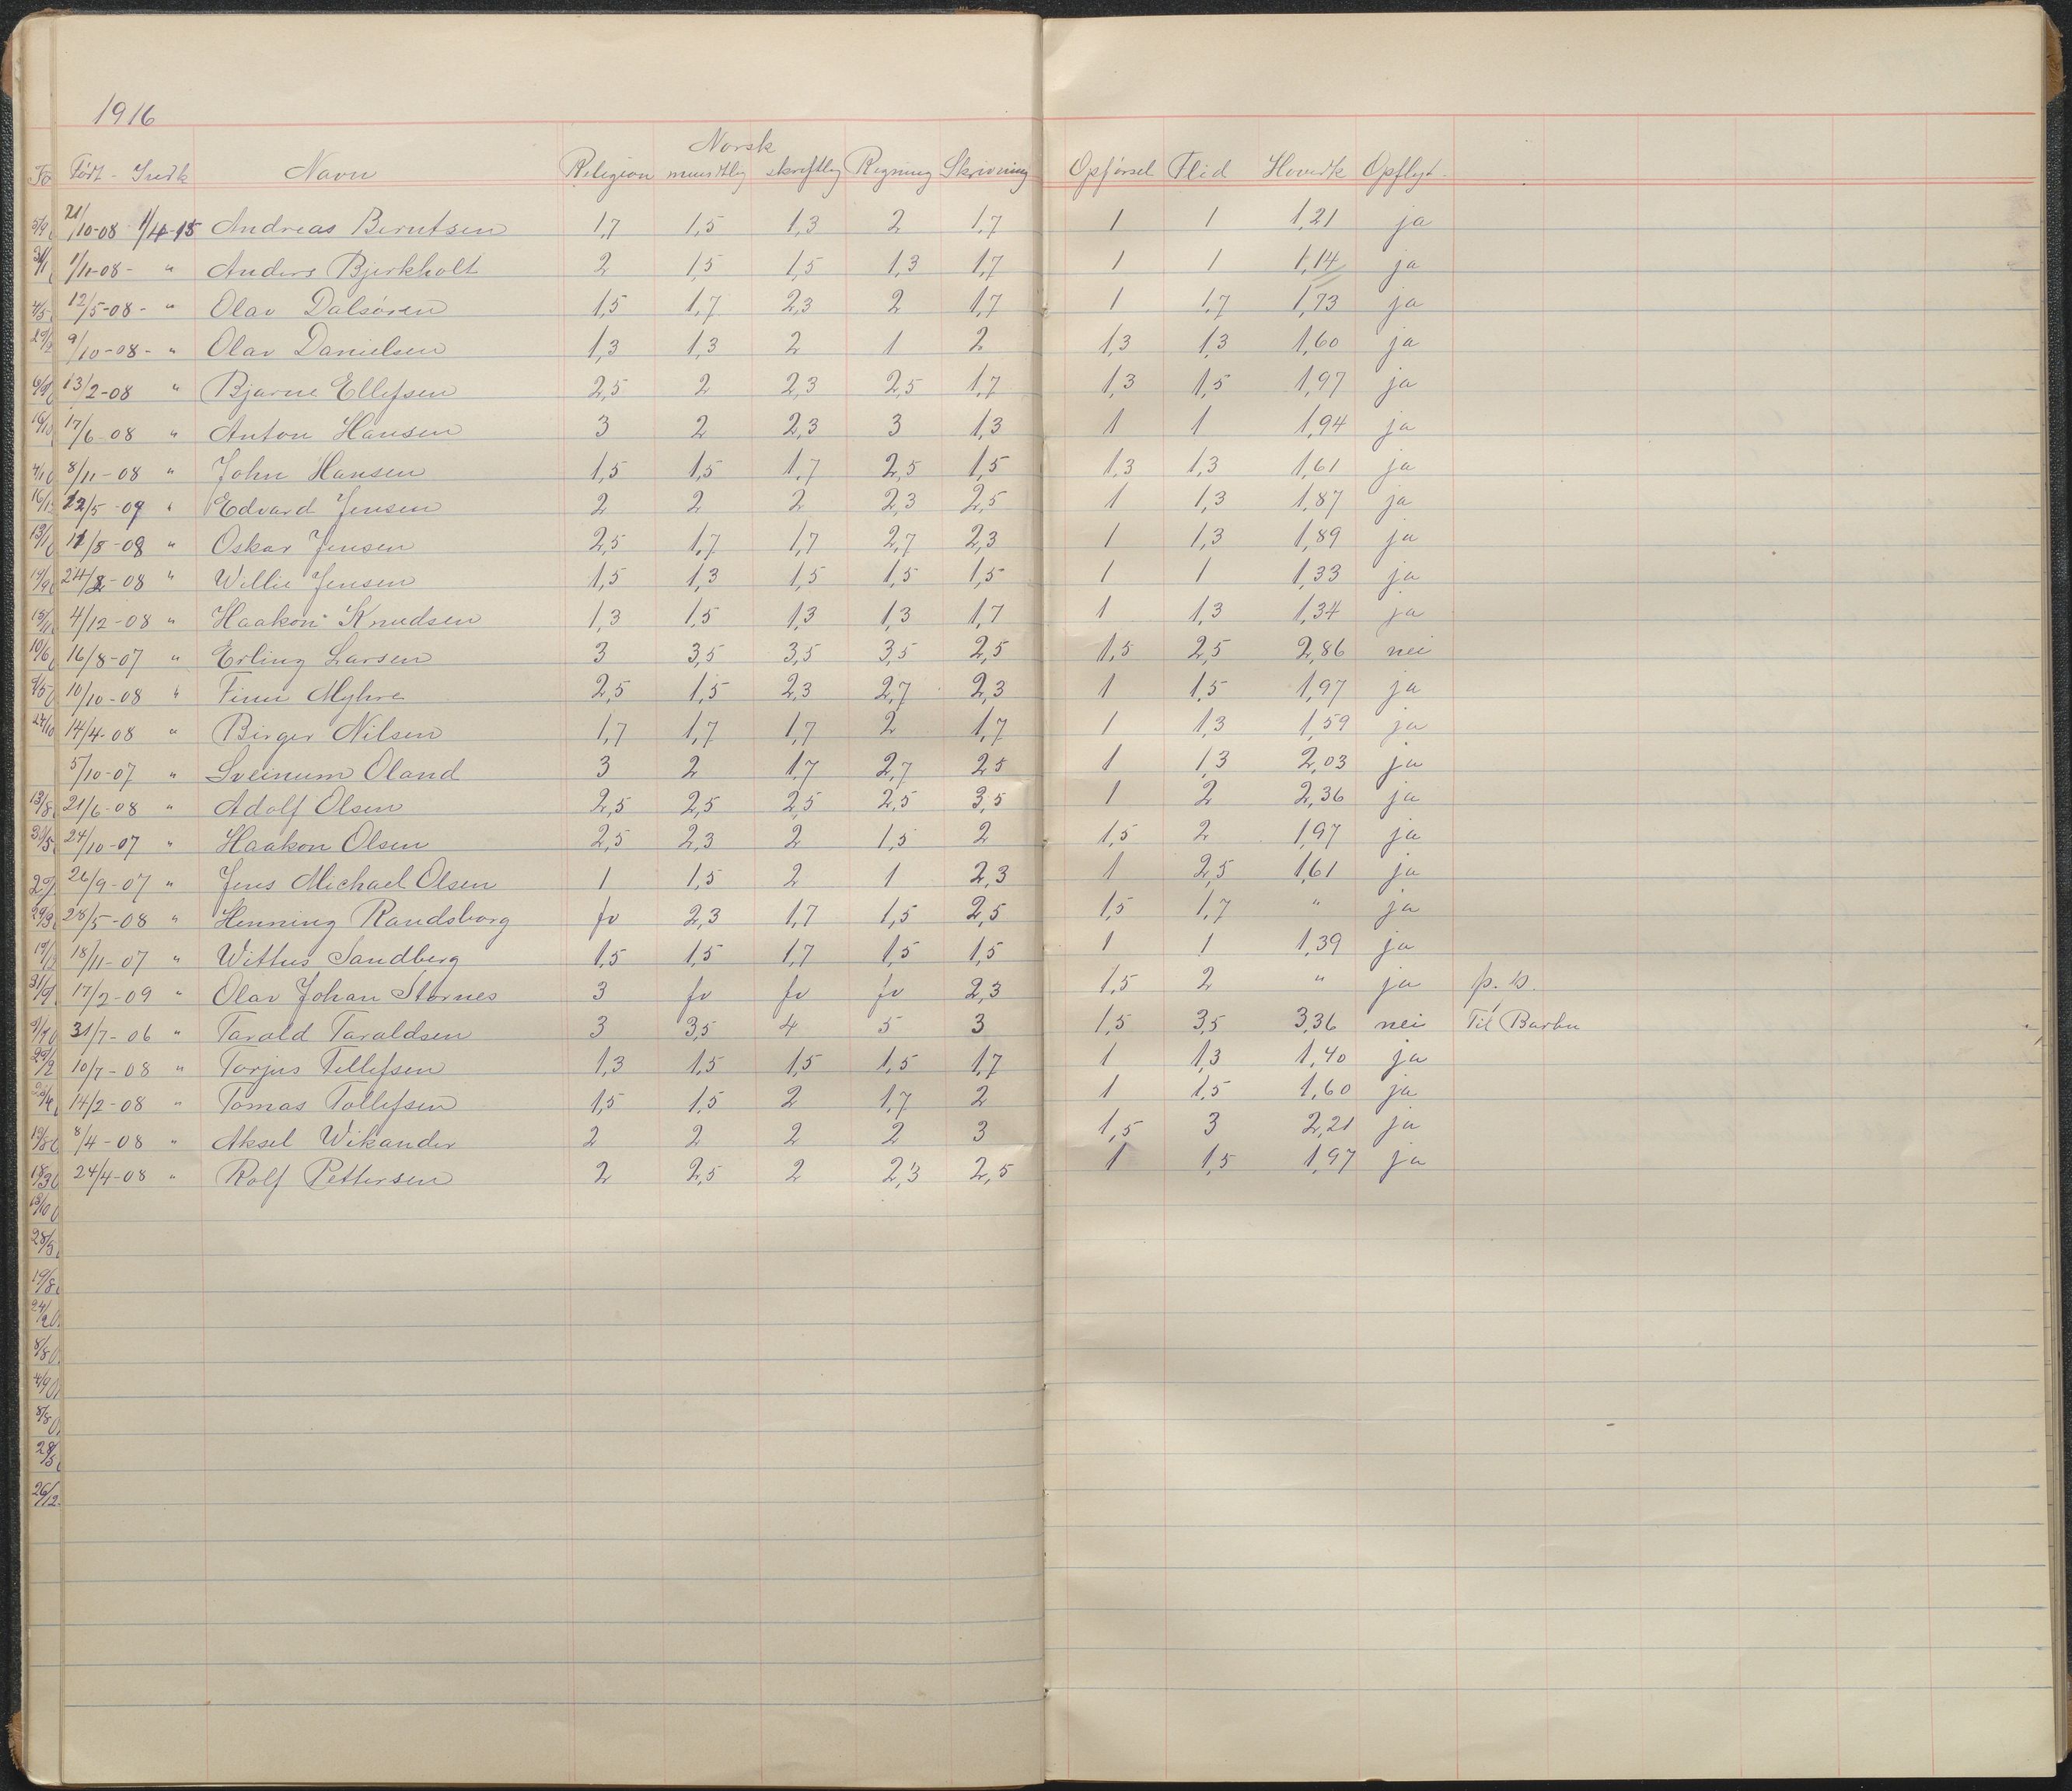 1916
Norsk
Fö Født - Indk Navn Religion mundtlig skriftlig Regning Skrivning Opførsel Flid Hovedk Opflyt.
5/9 21/10-08 1/4-15 Andreas Berntsen 1,7 1,5 1,3 2 1,7 1 1 1,21 ja
1/11-08- " Anders Bjerkholt 2 1,5 1,5 1,3 1,7 1 1 1,14 ja
4/5 12/5-08- " Olav Dalsøren 1,5 1,7 2,3 2 1,7 1 1,7 1,73 ja
9/10-08- " Olav Danielsen 1,3 1,3 2 1 2 1,3 1,3 1,60 ja
13/2-08 " Bjarne Ellefsen 2,5 2 2,3 2,5 1,7 1,3 1,5 1,97 ja
17/6-08 " Anton Hansen 3 2 2,3 3 1,3 1 1 1,94 ja
8/11-08 " John Hansen 1,5 1,5 1,7 2,5 1,5 1,3 1,3 1,61 ja
22/5-09 " Edvard Jensen 2 2 2 2,3 2,5 1 1,3 1,87 ja
11/8-08 " Oskar Jensen 2,5 1,7 1,7 2,7 2,3 1 1,3 1,89 ja
24/2-08 " Willie Jensen 1,5 1,3 1,5 1,5 1,5 1 1 1,33 ja
4/12-08 " Haakon Knudsen 1,3 1,5 1,3 1,3 1,7 1 1,3 1,34 ja
10/6 16/8-07 " Erling Larsen 3 3,5 3,5 3,5 2,5 1,5 2,5 2,86 nei
10/10-08 " Finn Myhre 2,5 1,5 2,3 2,7 2,3 1 1,5 1,97 ja
24/10 14/4-08 " Birger Nilsen 1,7 1,7 1,7 2 1,7 1 1,3 1,59 ja
5/10-07 " Sveinum Oland 3 2 1,7 2,7 2,5 1 1,3 2,03 ja
13/8 21/6-08 " Adolf Olsen 2,5 2,5 2,5 2,5 3,5 1 2 2,36 ja
24/10-07 " Haakon Olsen 2,5 2,3 2 1,5 2 1,5 2 1,97 ja
26/9-07 " Jens Michael Olsen 1 1,5 2 1 2,3 1 2,5 1,61 ja
28/5-08 " Henning Randsborg fv 2,3 1,7 1,5 2,5 1,5 1,7 " ja
18/11-07 " Wittus Sandberg 1,5 1,5 1,7 1,5 1,5 1 1 1,39 ja
17/2-09 " Olav Johan Stornes 3 fv fv fv 2,3 1,5 2 " ja p. p.
31/7-06 " Tarald Taraldsen 3 3,5 4 5 3 1,5 3,5 3,36 nei Til Barbu
29/2 10/7-08 " Torjus Tellefsen 1,3 1,5 1,5 1,5 1,7 1 1,3 1,40 ja
14/2-08 " Tomas Tollefsen 1,5 1,5 2 1,7 2 1 1,5 1,60 ja
8/4-08 " Aksel Wikander 2 2 2 2 3 1,5 3 2,21 ja
18/3 24/4-08 " Rolf Pettersen 2 2,5 2 2,3 2,5 1 1,5 1,97 ja
28/5
19/8
8/8
4/9
8/8
28/5
26/12